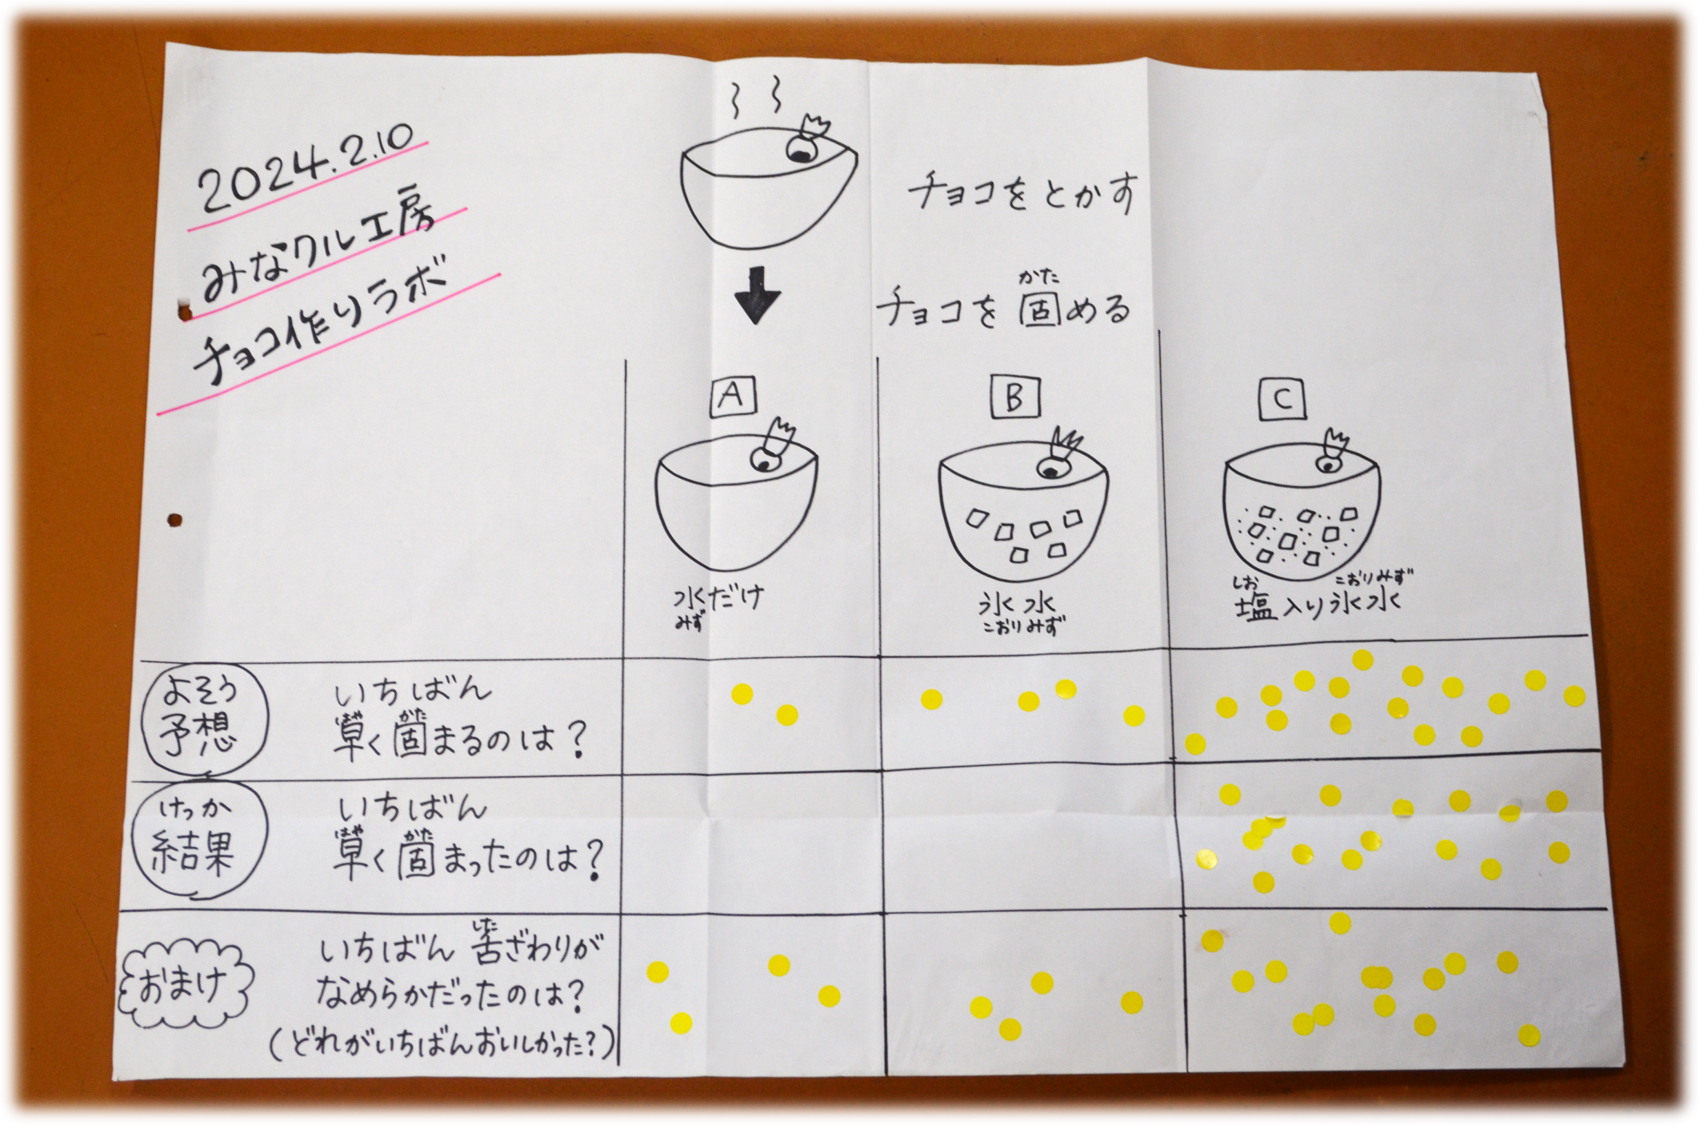 2024.2.10
みなクル工房
チョコ作りラボ
チョコをとかす
かた
チョコを固める
A
B
C
水だけ
みず
氷水
こおりみず
しお こおりみず
塩入り氷水
よそう
予想
いちばん
はや かた
早く固まるのは?
けっか
結果
いちばん
はや かた
早く固まったのは?
おまけ
した
いちばん舌ざわりが
なめらかだったのは?
(どれがいちばんおいしかった?)